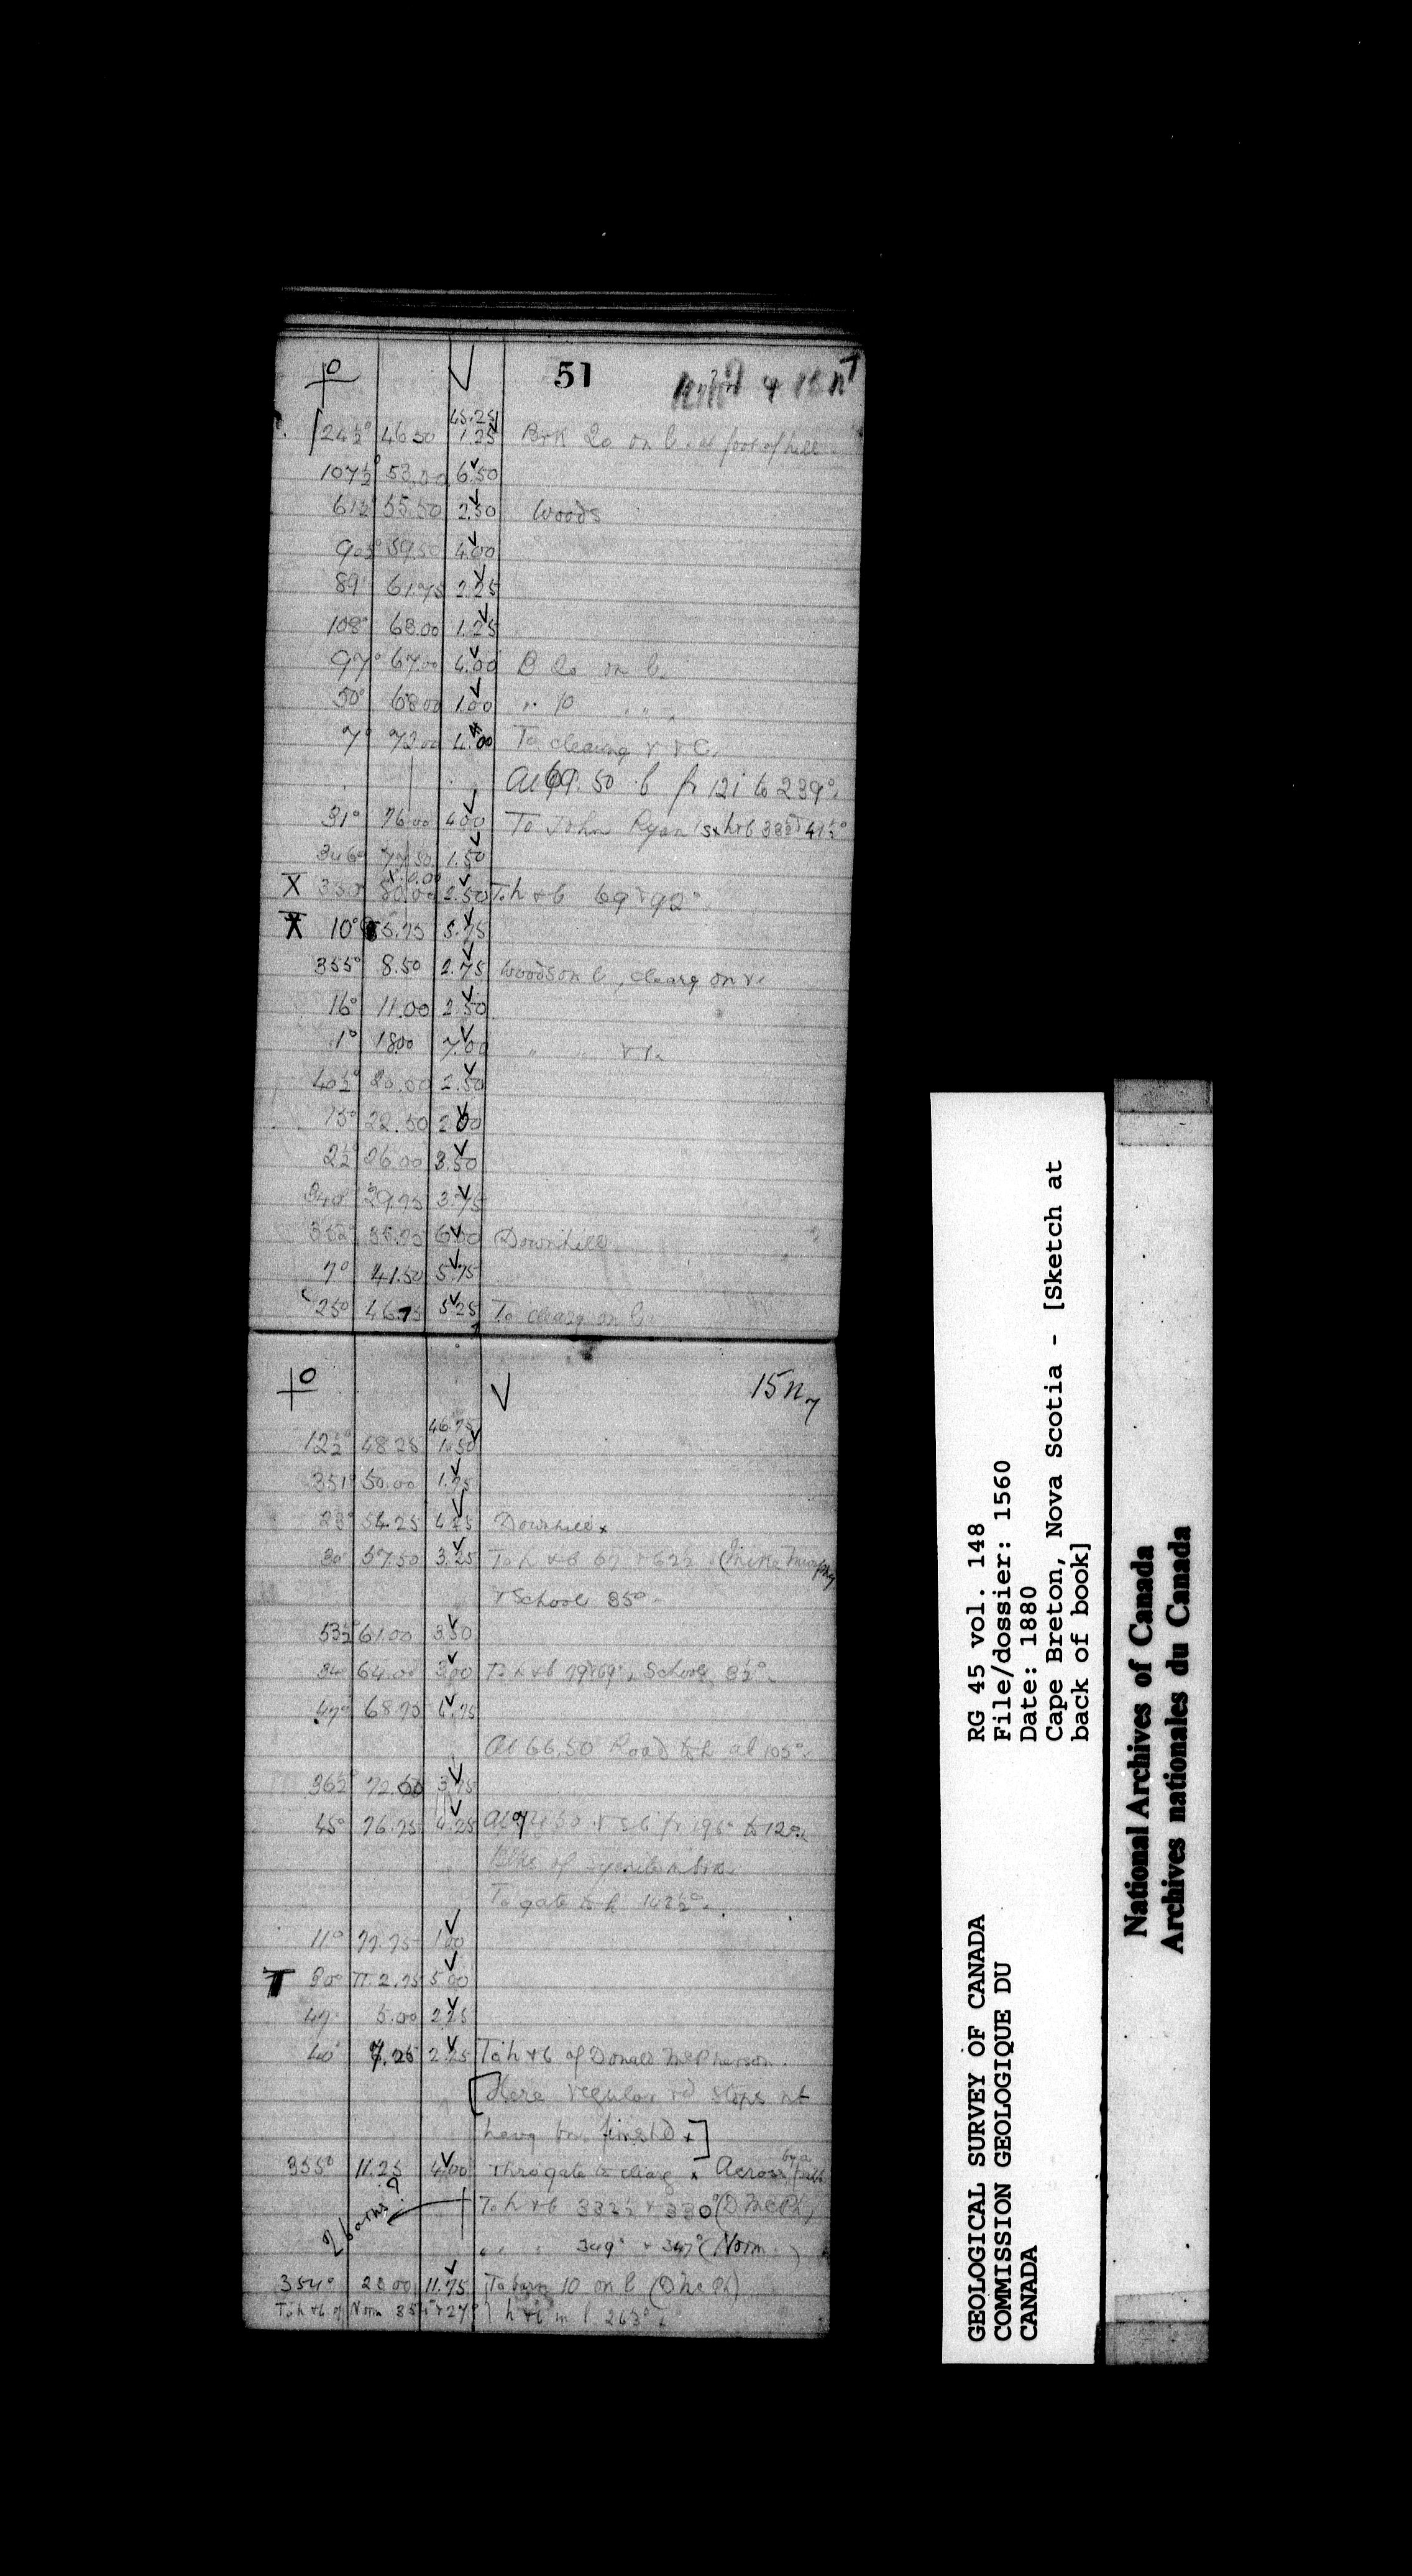 51
45.25
124½° 46.50 1.25 Brk 20 on l. at foot of hill
107½° 53.00 6.50
61½ 55.50 2.50 Woods
90½° 59.50 4.00
89° 61.75 2.25
108° 63.00 1.25
97° 67.00 4.00 B 20 on l.
50° 68.00 1.00 " 10 " "
7° 72.00 4.00 To clearing r + l.
At 69.50 b fr 121 to 239°.
31° 76.00 4.00 To John Ryan's h+b 33½ + 41½°
346° 77.50 1.50
X 0.00
X 330° 80.00 2.50 To h + b 69 + 92°.
X 10° 5.75 5.75
355° 8.50 2.75 Woods on l, clearg on r.
16° 11.00 2.50
1° 18.00 7.00 " " r + l.
40½° 20.50 2.50
15° 22.50 2.00
2½° 26.00 3.50
340° 29.75 3.75
352° 35.75 6.00 Downhill
7° 41.50 5.75
25° 46.75 5.25 To clearg on l.
15 n 7
46.75
12½° 48.25 1.50
351° 50.00 1.75
23° 54.25 4.25 Downhill x
30° 57.50 3.25 To h + b 67 + 62½ (Mike Murphy
+ School 35°.
53½° 61.00 3.50
34° 64.00 3.00 To h + b 79 + 69°, School, 3½°.
47° 68.75 4.75
At 66.50 Road to h at 105°.
36½° 72.50 3.75
45° 76.75 4.25 At 74.50 fr 196° to 12°.
Blks of Syenite
To gate to h 142½°.
11° 77.75 1.00
T 30° II 2.75 5.00
47° 5.00 2.25
40° 7.25 2.25 To h + b of Donald McPherson.
[Here regular rd stops nt
havg bn finishd x]
355° 11.25 4.00 Thro gate to clearg x Across by a path
2 barns? To h + b 332½ + 330° (D McPh)
" " 349° + 347° (Norm.)
354° 23.00 11.75 To barn 10 on l (D McPh)
To h + b of Norm 35 + 27° h + b on l 263°
GEOLOGICAL SURVEY OF CANADA
COMMISSION GEOLOGIQUE DU
CANADA
RG 45 vol. 148
File/dossier: 1560
Date: 1880
Cape Breton, Nova Scotia - [Sketch at
back of book]
National Archives of Canada
Archives nationales du Canada